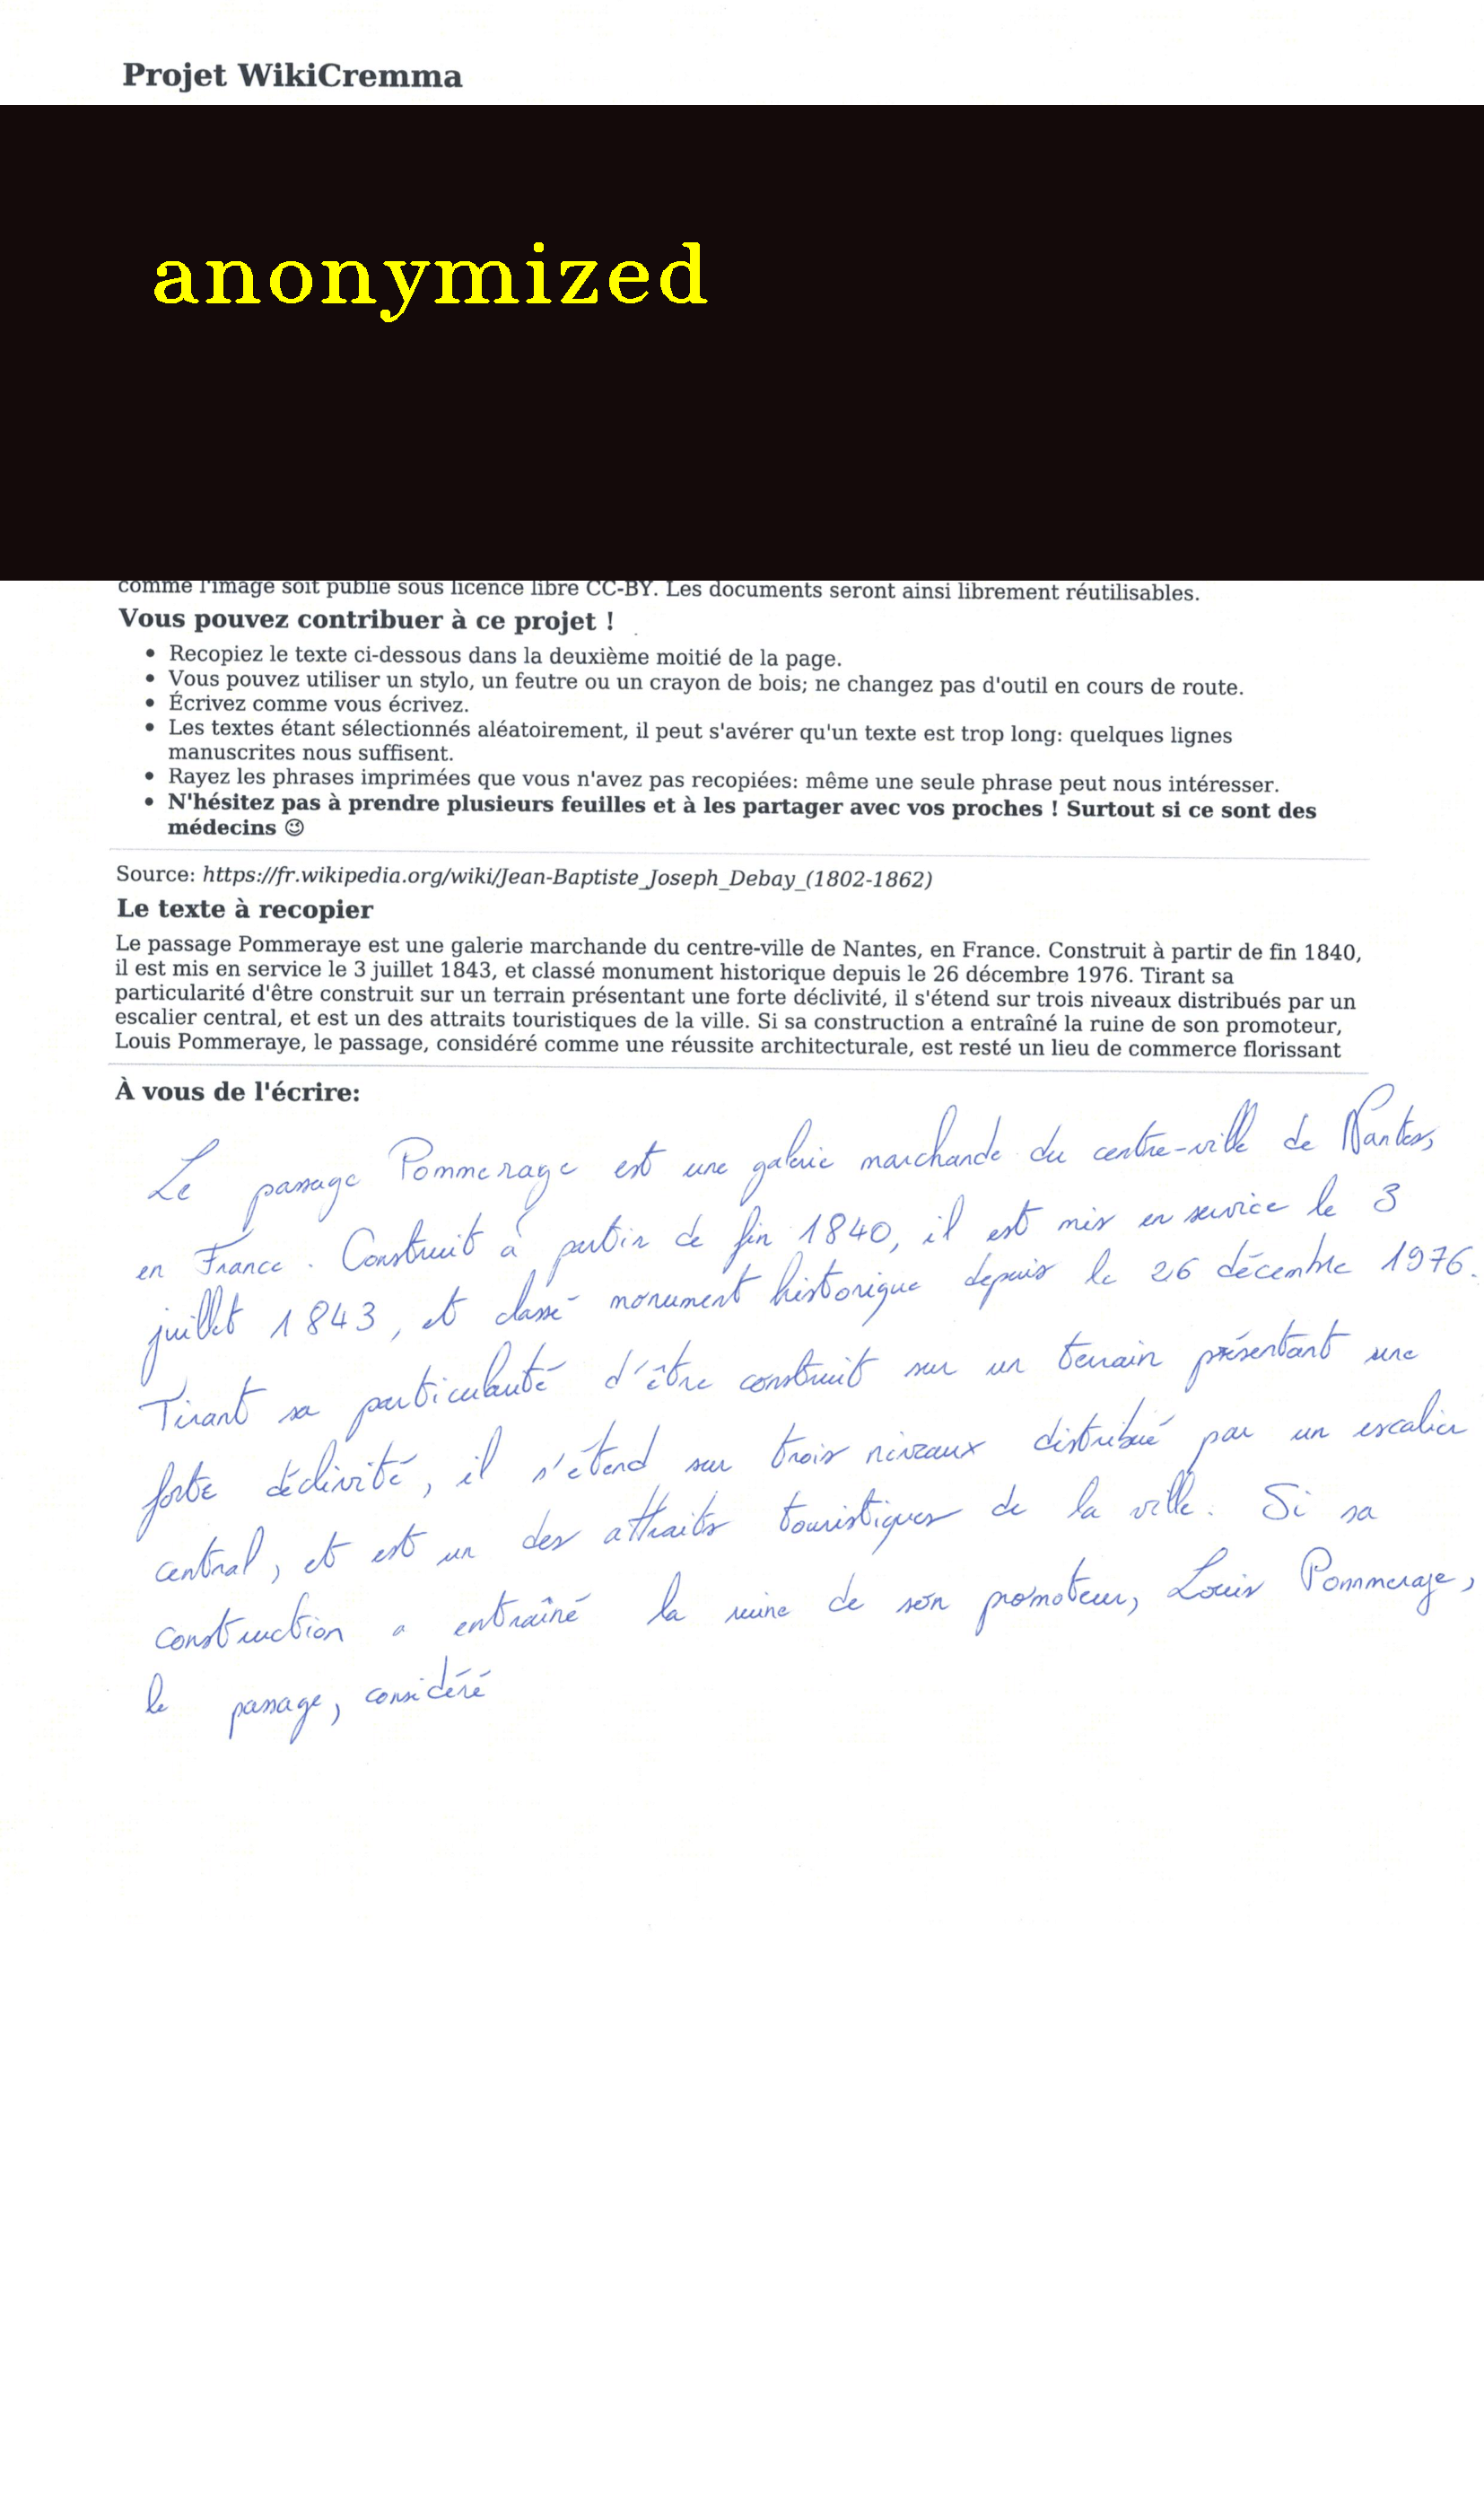 Projet WikiCremma
anonymized
comme l'image soit publié sous licence libre CC-BY. Les documents seront ainsi librement réutilisables.
Vous pouvez contribuer à ce projet !
• Recopiez le texte ci-dessous dans la deuxième moitié de la page.
• Vous pouvez utiliser un stylo, un feutre ou un crayon de bois; ne changez pas d'outil en cours de route.
• Écrivez comme vous écrivez.
• Les textes étant sélectionnés aléatoirement, il peut s'avérer qu'un texte est trop long: quelques lignes
manuscrites nous suffisent.
• Rayez les phrases imprimées que vous n'avez pas recopiées: même une seule phrase peut nous intéresser.
• N'hésitez pas à prendre plusieurs feuilles et à les partager avec vos proches ! Surtout si ce sont des
médecins 😉
Source: https://fr.wikipedia.org/wiki/Jean-Baptiste_Joseph_Debay_(1802-1862)
Le texte à recopier
Le passage Pommeraye est une galerie marchande du centre-ville de Nantes, en France. Construit à partir de fin 1840,
il est mis en service le 3 juillet 1843, et classé monument historique depuis le 26 décembre 1976. Tirant sa
particularité d'être construit sur un terrain présentant une forte déclivité, il s'étend sur trois niveaux distribués par un
escalier central, et est un des attraits touristiques de la ville. Si sa construction a entraîné la ruine de son promoteur,
Louis Pommeraye, le passage, considéré comme une réussite architecturale, est resté un lieu de commerce florissant
À vous de l'écrire:
Le passage Pommeraye est une galerie marchande du centre-ville de Nantes,
en France. Construit à partir de fin 1840, il est mis en service le 3
juillet 1843, et classé monument historique depuis le 26 décembre 1976.
Tirant sa particularité d'être construit sur un terrain présentant une
forte déclivité, il s'étend sur trois niveaux distribué par un escalier
central, et est un des attraits touristiques de la ville. Si sa
construction a entraîné la ruine de son promoteur, Louis Pommeraye,
le passage, considéré